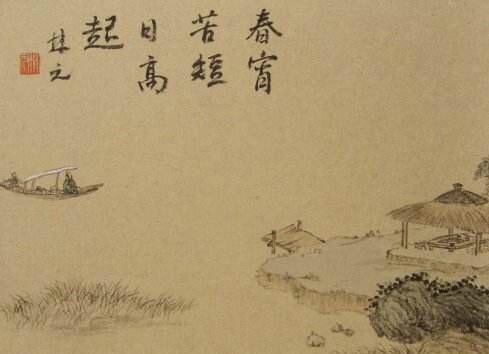 春宵
苦短
日高
起
林元